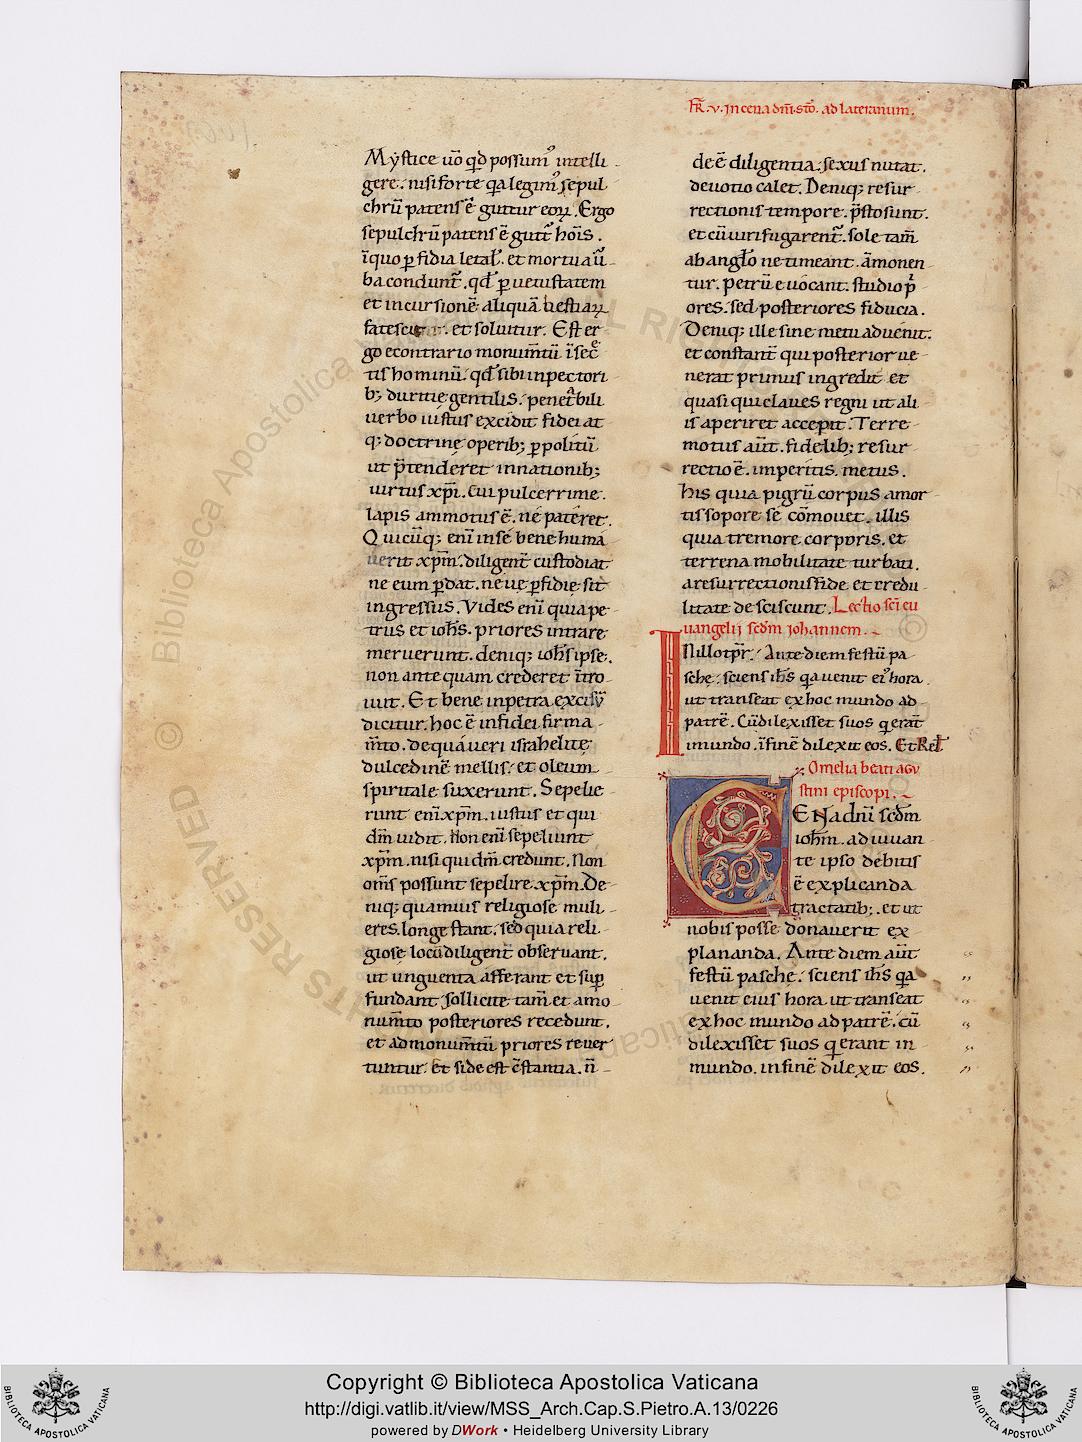 FR. v. In cena dñi. Stõ. ad lateranum.
Mystice ũo qd possum᷒ intelli
gere. nisi forte qa legim᷒ sepul
chrũ patens ẽ guttur eoꝝ. Ergo
sepulchrũ patens ẽ gutt̃ hoĩs.
ĩ quo ꝑfidia letal. et mortua ũ
ba condunt̃. qd ꝑ uetustatem
et incursionẽ aliquã bestiaꝝ
et soluitur. Est er
go econtrario monum̃tũ
tis hominũ. qd sibi in pectori
b; duritię gentilis. penet̃bili
uerbo iustus excidit fidei at
q; doctrinę operib; ꝑpolitũ
ut p̃tenderet in nationib;
uirtus xp̃i. Cui pulcerrime.
lapis ammotus ẽ. ne pateret.
Quicũq; eni in se bene huma
uerit xp̃m. diligent̃ custodiat
ne eum ꝑdat. ne uę ꝑfidię sit
ingressus. Vides eni quia pe
trus et ioh̃s. priores intrare
meruerunt. deniq; ioh̃s ipse.
non ante quam crederet ĩtro
iuit. Et bene in petra
dicitur. hoc ẽ in fidei firma
m̃to. de qua ueri israhelitę
dulcedinẽ mellis. et oleum
spiritale suxerunt. Sepelie
runt eni xp̃m. iustus et qui
dm̃ uidit. Non eni sepeliunt
xp̃m. nisi qui dm̃ credunt. Non
om̃s possunt sepelire xp̃m. De
niq; quamuis religiose muli
eres. longe stant. sed quia reli
giosę locũ diligent̃ obseruant.
ut unguenta afferant et suꝑ
fundant sollicite tam̃ et amo
num̃to posteriores recedunt.
et ad monum̃tũ priores reuer
tuntur. Et si de est c̃stantia. ñ
de ẽ diligentia. sexus nutat.
deuotio calet. Deniq; resur
rectionis tempore. p̃sto sunt.
et cũ uiri fugarent̃. sole tam̃
ab anglo ne timeant. ãmonen
tur. petrũ euocant. studio p̃
ores. sed posteriores fiducia.
Deniq; ille sine metu aduenit.
et constant̃ qui posterior ue
nerat primus ingredit̃ et
quasi qui claues regni ut ali
is aperiret accepit. Terre
motus aũt. fidelib; resur
rectio ẽ. imperitis. metus.
his quia pigrũ corpus a mor
tis sopore se cõmouet. illis
quia tremore corporis. et
terrena mobilitate turbati.
a resurrectionis fide et credu
litate desciscunt. Lectio sc̃i eu
uangelij scdm̃ iohannem.
IN illo tp̃r. Ante diem festũ pa
schę. sciens ih̃s qa uenit ei᷒ hora
ut transeat ex hoc mundo ad
patrẽ. Cũ dilexisset suos q̃ erãt
i mundo. ĩ finẽ dilexit eos. Et Rel
Omelia beati agu
stini episcopi.
CENA dnĩ scdm̃
ioh̃m. adiuuan
te ipso debitis
ẽ explicanda
tractatib;. et ut
nobis posse donauerit ex
plananda. Ante diem aũt
festũ paschę. sciens ih̃s qa
uenit eius hora ut transeat
ex hoc mundo ad patrẽ. cũ
dilexisset suos q̃ erant in
mundo. in finẽ dilexit eos.
© Biblioteca Apostolica Vaticana
ALL RIGHTS RESERVED
BIBLIOTECA APOSTOLICA VATICANA
Copyright © Biblioteca Apostolica Vaticana
http://digi.vatlib.it/view/MSS_Arch.Cap.S.Pietro.A.13/0226
powered by DWork • Heidelberg University Library
BIBLIOTECA APOSTOLICA VATICANA